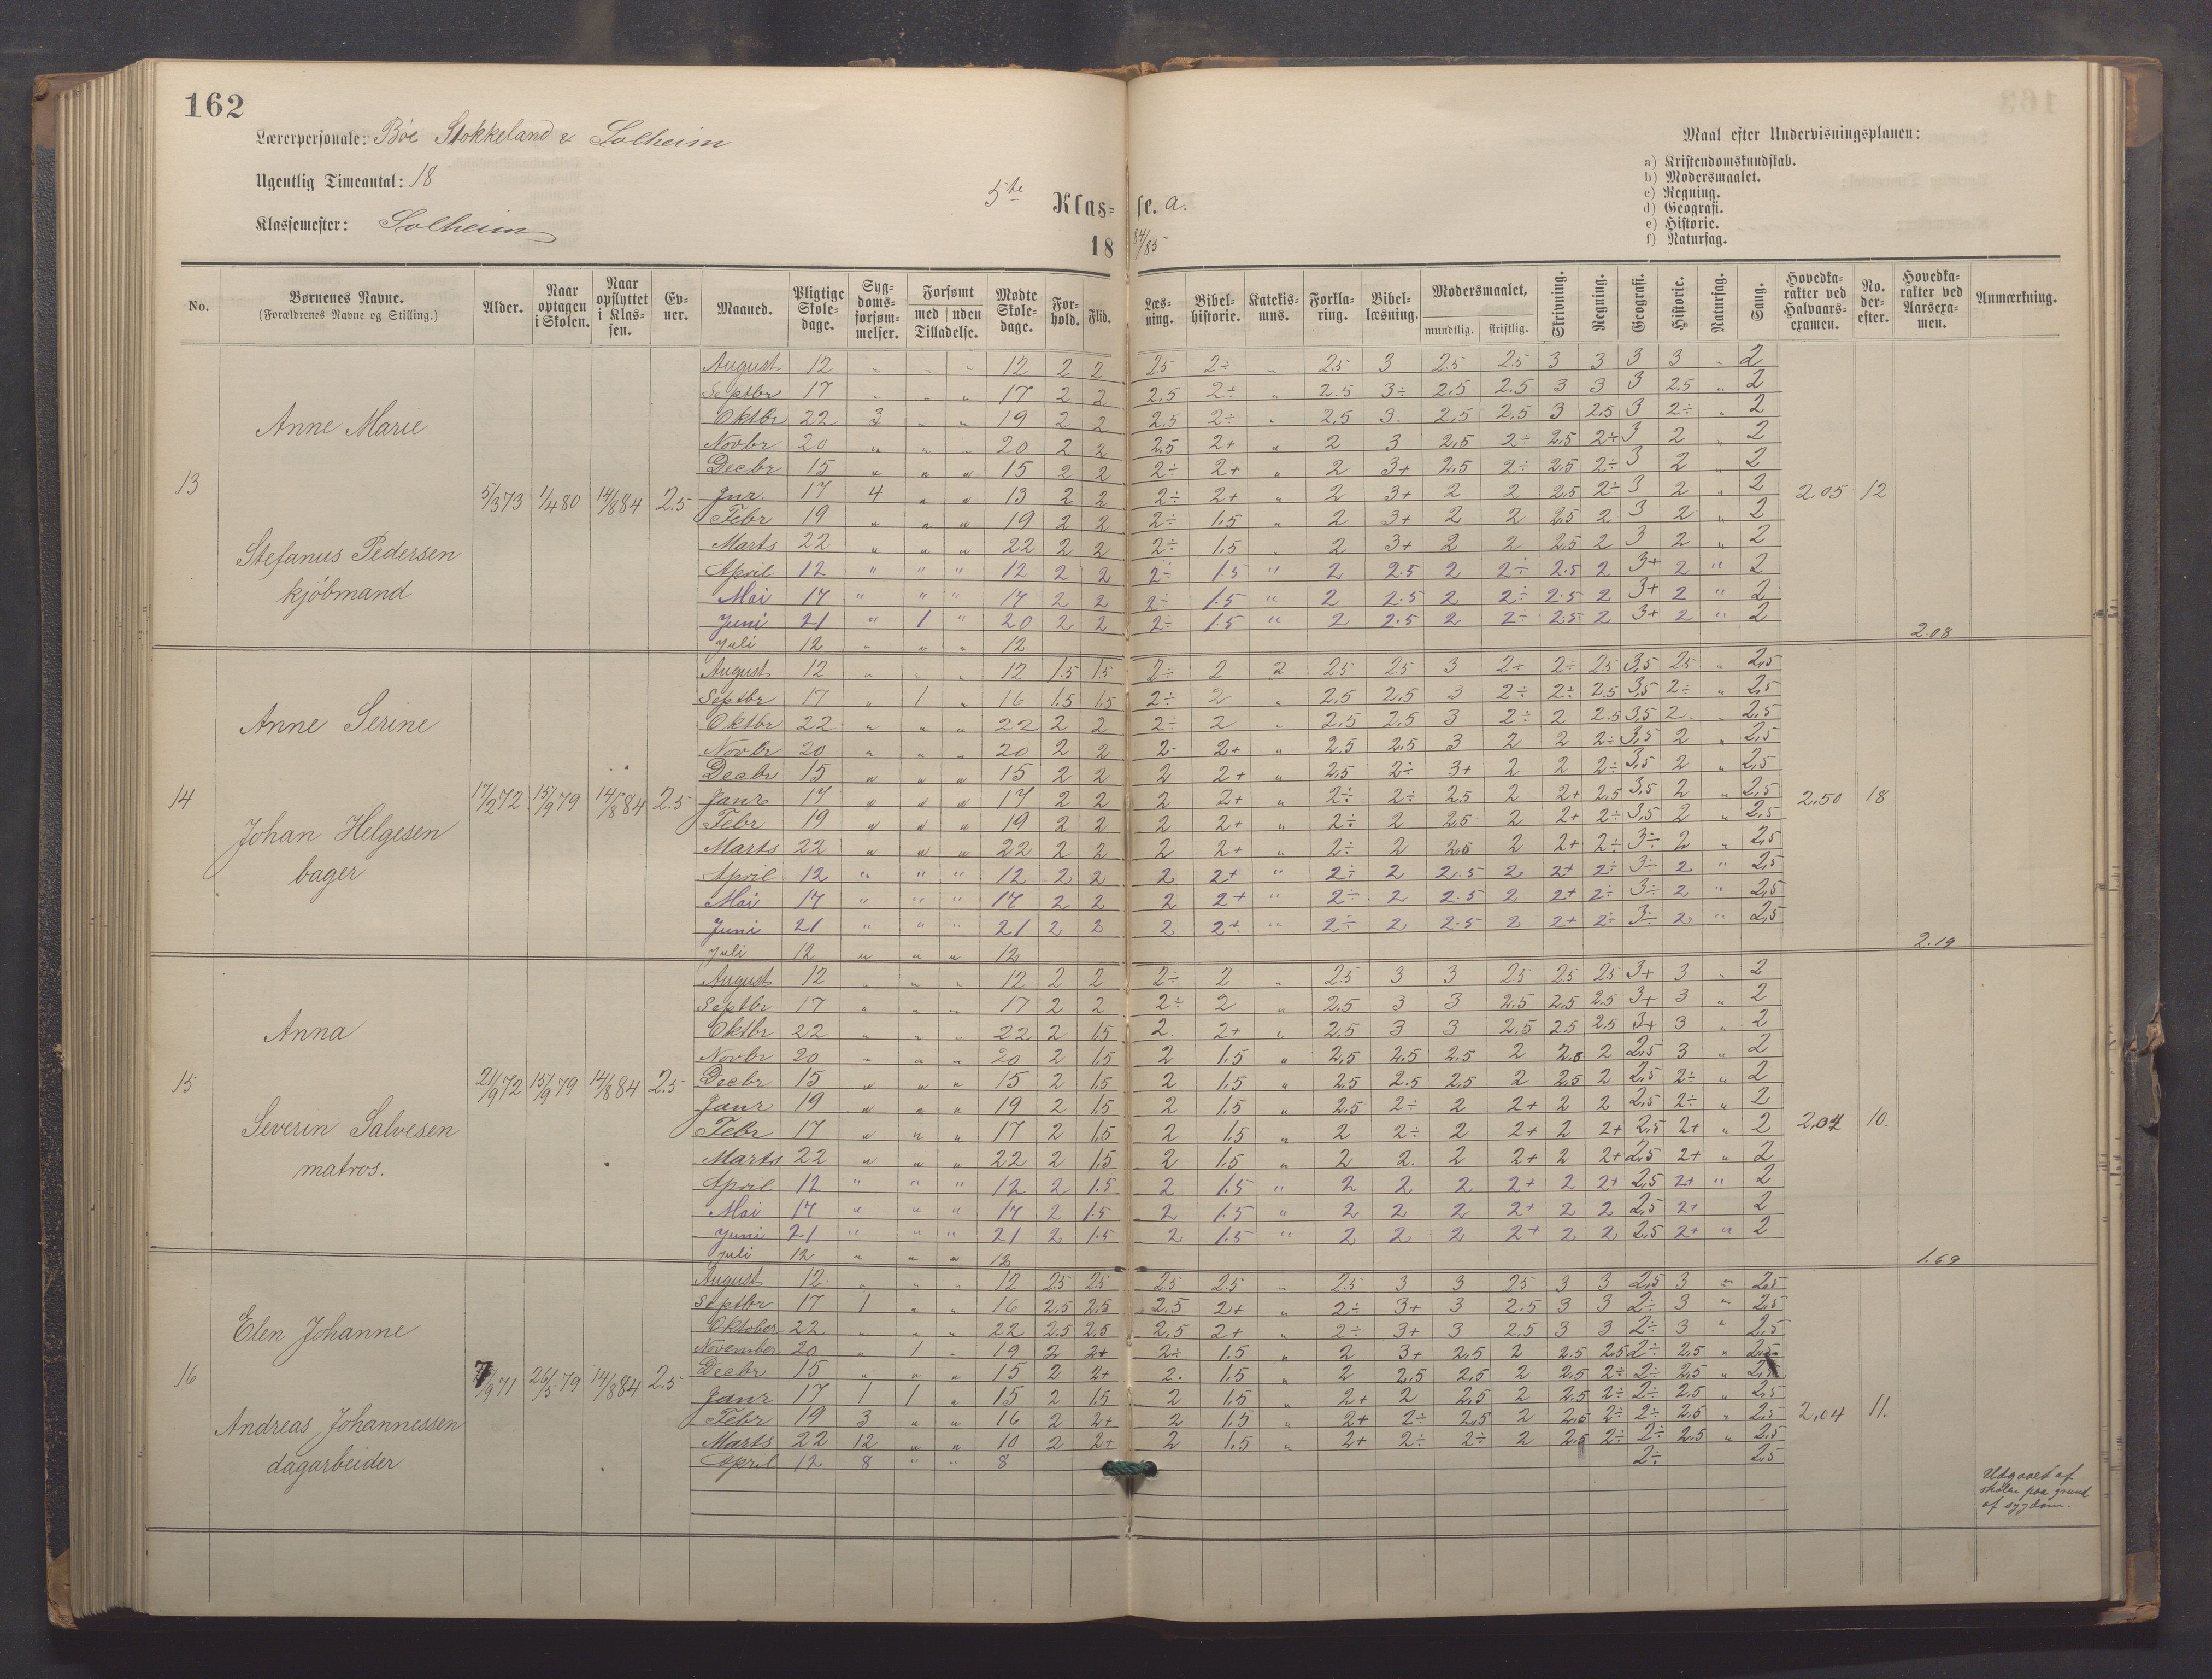 162
Lærerpersonale: Bøe Stokkeland & Solheim
Ugentlig Timeantal: 18
Klassemester: Solheim
5te Klas= se. a.
18 84/85
Maal efter Undervisningsplanen:
a) Kristendomskundskab.
b) Modersmaalet.
c) Regning.
d) Geografi.
e) Historie.
f) Naturfag.
No. Børnenes Navne. (Forældrenes Navne og Stilling.) Alder. Naar optagen i Skolen. Naar opflyttet i Klassen. Evner. Maaned. Pligtige Skoledage. Sygdomsforsømmelser. Forsømt med uden Tilladelse. Mødte Skoledage. Forhold. Flid. Læsning. Bibelhistorie. Katekismus. Forklaring. Bibellæsning. Modersmaalet, mundtlig. skriftlig. Skrivning. Regning. Geografi. Historie. Naturfag. Sang. Hovedkarakter ved Halvaarsexamen. No. derefter. Hovedkarakter ved Aarsexamen. Anmærkning.
13 Anne Marie
Stefanus Pedersen
kjöbmand
5/3 73 1/4 80 14/8 84 2.5 2.05 12 2.08
August 12 " " " 12 2 2 2.5 2÷ " 2.5 3 2.5 2.5 3 3 3 3 " 2
Septbr 17 " " " 17 2 2 2.5 2÷ " 2.5 3÷ 2.5 2.5 3 3 3 2.5 " 2
Oktbr 22 3 " " 19 2 2 2.5 2÷ " 2.5 3 2.5 2.5 3 2.5 3 2÷ " 2
Novbr 20 " " " 20 2 2 2.5 2+ " 2 3 2.5 2÷ 2.5 2÷ 3 2 " 2
Decbr 15 " " " 15 2 2 2÷ 2+ " 2 3+ 2.5 2÷ 2.5 2÷ 3 2 " 2
Jnr. 17 4 " " 13 2 2 2÷ 2+ " 2 3+ 2 2 2.5 2÷ 3 2 " 2
Febr 19 " " " 19 2 2 2÷ 1.5 " 2 3+ 2 2 2.5 2 3 2 " 2
Marts 22 " " " 22 2 2 2÷ 1.5 " 2 3+ 2 2 2.5 2 3 2 " 2
April 12 " " " 12 2 2 2÷ 1.5 " 2 2.5 2 2÷ 2.5 2 3+ 2 " 2
Mai 17 " " " 17 2 2 2÷ 1.5 " 2 2.5 2 2÷ 2.5 2 3+ 2 " 2
Juni 21 " 1 " 20 2 2 2÷ 1.5 " 2 2.5 2 2÷ 2.5 2 3+ 2 " 2
Juli 12 " " " 12
14 Anne Serine
Johan Helgesen
bager
17/2 72 15/9 79 14/8 84 2.5 2.50 18 2.19
August 12 " " " 12 1.5 1.5 2÷ 2 2 2.5 2.5 3 2+ 2÷ 2.5 3,5 2.5 " 2,5
Septbr 17 " 1 " 16 1.5 1.5 2÷ 2 " 2.5 2.5 3 2÷ 2÷ 2.5 3,5 2÷ " 2,5
Oktbr 22 " " " 22 2 2 2÷ 2 " 2.5 2.5 3 2÷ 2 2.5 3,5 2 " 2,5
Novbr 20 " " " 20 2 2 2- 2+ " 2.5 2.5 3 2 2 2÷ 3,5 2 " 2,5
Decbr 15 " " " 15 2 2 2 2+ " 2.5 2÷ 3+ 2 2 2÷ 3,5 2 " 2,5
Janr 17 " " " 17 2 2 2 2+ " 2÷ 2÷ 2.5 2 2+ 2.5 3,5 2 " 2,5
Febr 19 " " " 19 2 2 2 2+ " 2÷ 2 2.5 2 2+ 2÷ 3,5 2 " 2,5
Marts 22 " " " 22 2 2 2 2+ " 2÷ 2 2.5 2 2+ 2÷ 3÷ 2 " 2,5
April 12 " " " 12 2 2 2 2+ " 2÷ 2 2.5 2 2+ 2÷ 3÷ 2 " 2,5
Mai 17 " " " 17 2 2 2 2+ " 2÷ 2 2.5 2 2+ 2÷ 3÷ 2 " 2,5
Juni 21 " " " 21 2 2 2 2+ " 2÷ 2 2.5 2 2+ 2÷ 3÷ 2 " 2,5
Juli 12 " " " 12
15 Anna
Severin Salvesen
matros.
21/9 72 15/9 79 14/8 84 2.5 2,04 10. 1.69
August 12 " " " 12 2 2 2÷ 2 " 2.5 3 3 2.5 2.5 2.5 3+ 3 " 2
Septbr 17 " " " 17 2 2 2÷ 2 " 2.5 3 3 2.5 2.5 2.5 3+ 3 " 2
Oktbr 22 " " " 22 2 1.5 2. 2+ " 2.5 3 3 2.5 2.5 2.5 3+ 3 " 2
Novbr 20 " " " 20 2 1.5 2 1.5 " 2.5 2.5 2.5 2 2.5 2 2,5 3 " 2
Decbr 15 " " " 15 2 1.5 2 1.5 " 2.5 2.5 2.5 2 2.5 2 2,5 2÷ " 2
Janr 19 " " " 19 2 1.5 2 1.5 " 2.5 2÷ 2 2+ 2 2 2,5 2÷ " 2
Febr 17 " " " 17 2 1.5 2 1.5 " 2 2÷ 2 2+ 2 2+ 2,5 2+ " 2
Marts 22 " " " 22 2 1.5 2 1.5 " 2 2. 2 2+ 2 2+ 2,5 2+ " 2
April 12 " " " 12 2 1.5 2 1.5 " 2 2 2 2+ 2 2+ 2,5 2+ " 2
Mai 17 " " " 17 2 1.5 2 1.5 " 2 2 2 2+ 2 2 2,5 2+ 2
Juni 21 " " " 21 2 1.5 2 1.5 " 2 2 2 2+ 2 2 2,5 2+ " 2
Juli 12 " " " 12
16 Elen Johanne
Andreas Johannessen
dagarbeider
7/9 71 26/5 79 14/8 84 2.5 2,04 11.
August 12 " " " 12 2.5 2.5 2.5 2.5 " 2.5 3 3 2.5 3 3 2,5 3 " 2,5
Septbr 17 1 " " 16 2.5 2.5 2.5 2+ " 2÷ 3+ 3 2.5 3 3 2÷ 3 " 2,5
Oktober 22 " " " 22 2.5 2.5 2.5 2+ " 2÷ 3+ 3 2.5 3 3 2÷ 3 " 2,5
November 20 " 1 " 19 2 2+ 2÷ 1.5 " 2 3+ 2.5 2 2.5 2.5 2÷ 2.5 " 2,5
Decbr 15 " " " 15 2 2+ 2. 1.5 " 2 2.5 2.5 2 2.5 2÷ 2÷ 2.5 " 2,5
Janr 17 1 1 " 15 2 1.5 2 1.5 " 2+ 2 2.5 2 2.5 2÷ 2÷ 2.5 " 2,5
Febr 19 3 " " 16 2 2+ 2 1.5 " 2+ 2÷ 2.5 2 2.5 2÷ 2÷ 2.5 " 2,5
Marts 22 12 " " 10 2 2+ 2 1.5 " 2+ 2÷ 2÷ 2 2.5 2÷ 2÷ 2.5 " 2,5
April 12 8 " " 8 2÷ 2,5
Udgaaet af
skolen paa grund
af sygdom.